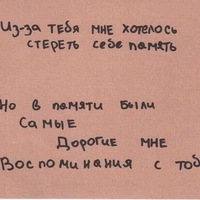 Из-за тебя мне хотелось
стереть себе память
Но в памяти были
самые
Дорогие мне
Воспоминания с тоб